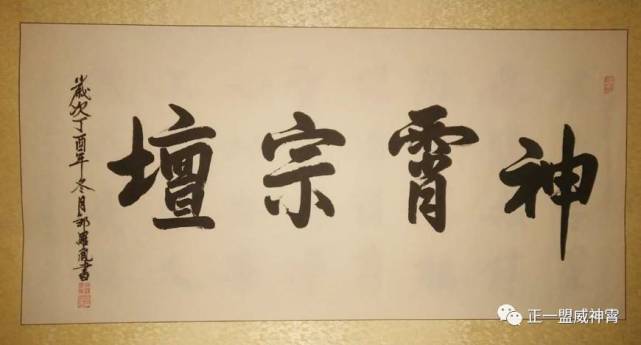 神霄宗壇
歲次丁酉年冬月
正一盟威神霄